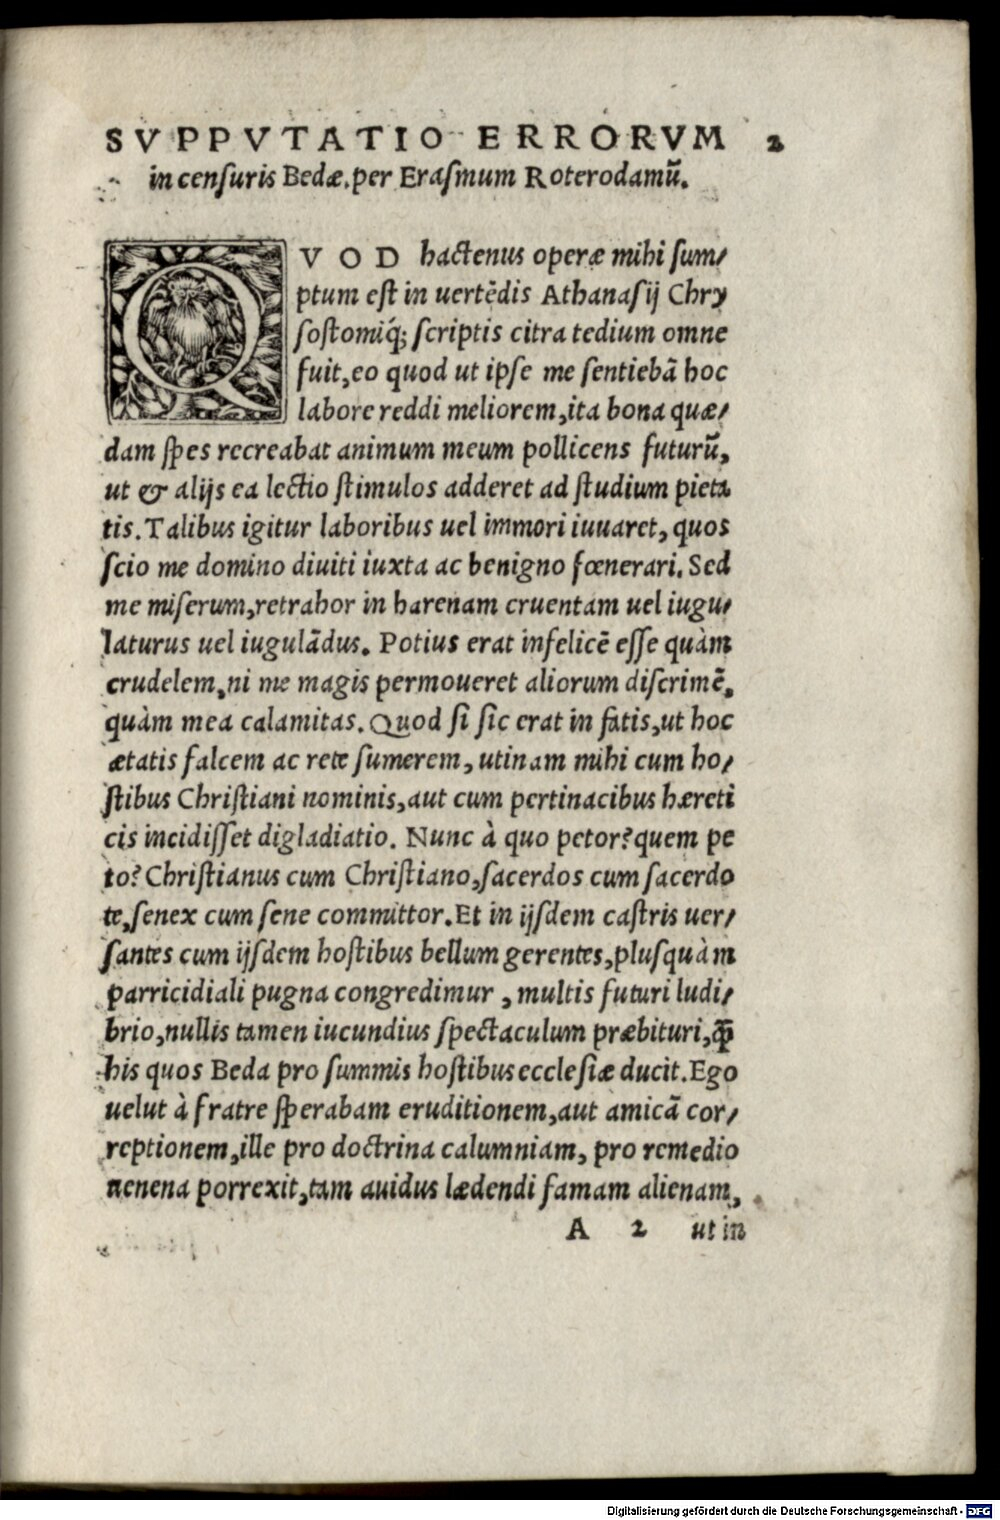 SVPPVTATIO ERRORVM 2
in censuris Bedæ. per Erasmum Roterodamū.
QVOD hactenus operæ mihi sum/
ptum est in uertēdis Athanasij Chry
sostomiq́; scriptis citra tedium omne
fuit, eo quod ut ipse me sentiebā hoc
labore reddi meliorem, ita bona quæ/
dam spes recreabat animum meum pollicens futurū,
ut & alijs ea lectio stimulos adderet ad studium pieta
tis. Talibus igitur laboribus uel immori iuuaret, quos
scio me domino diuiti iuxta ac benigno fœnerari. Sed
me miserum, retrahor in harenam cruentam uel iugu/
laturus uel iugulādus. Potius erat infelicē esse quàm
crudelem, ni me magis permoueret aliorum discrimē,
quàm mea calamitas. Quod si sic erat in fatis, ut hoc
ætatis falcem ac rete sumerem, utinam mihi cum ho/
stibus Christiani nominis, aut cum pertinacibus hæreti
cis incidisset digladiatio. Nunc à quo petor? quem pe
to? Christianus cum Christiano, sacerdos cum sacerdo
te, senex cum sene committor. Et in ijsdem castris uer/
santes cum ijsdem hostibus bellum gerentes, plusquàm
parricidiali pugna congredimur, multis futuri ludi/
brio, nullis tamen iucundius spectaculum præbituri, q̄ꝫ
his quos Beda pro summis hostibus ecclesiæ ducit. Ego
uelut à fratre sperabam eruditionem, aut amicā cor/
reptionem, ille pro doctrina calumniam, pro remedio
uenena porrexit, tam auidus lædendi famam alienam,
A 2 ut in
Digitalisierung gefördert durch die Deutsche Forschungsgemeinschaft - DFG